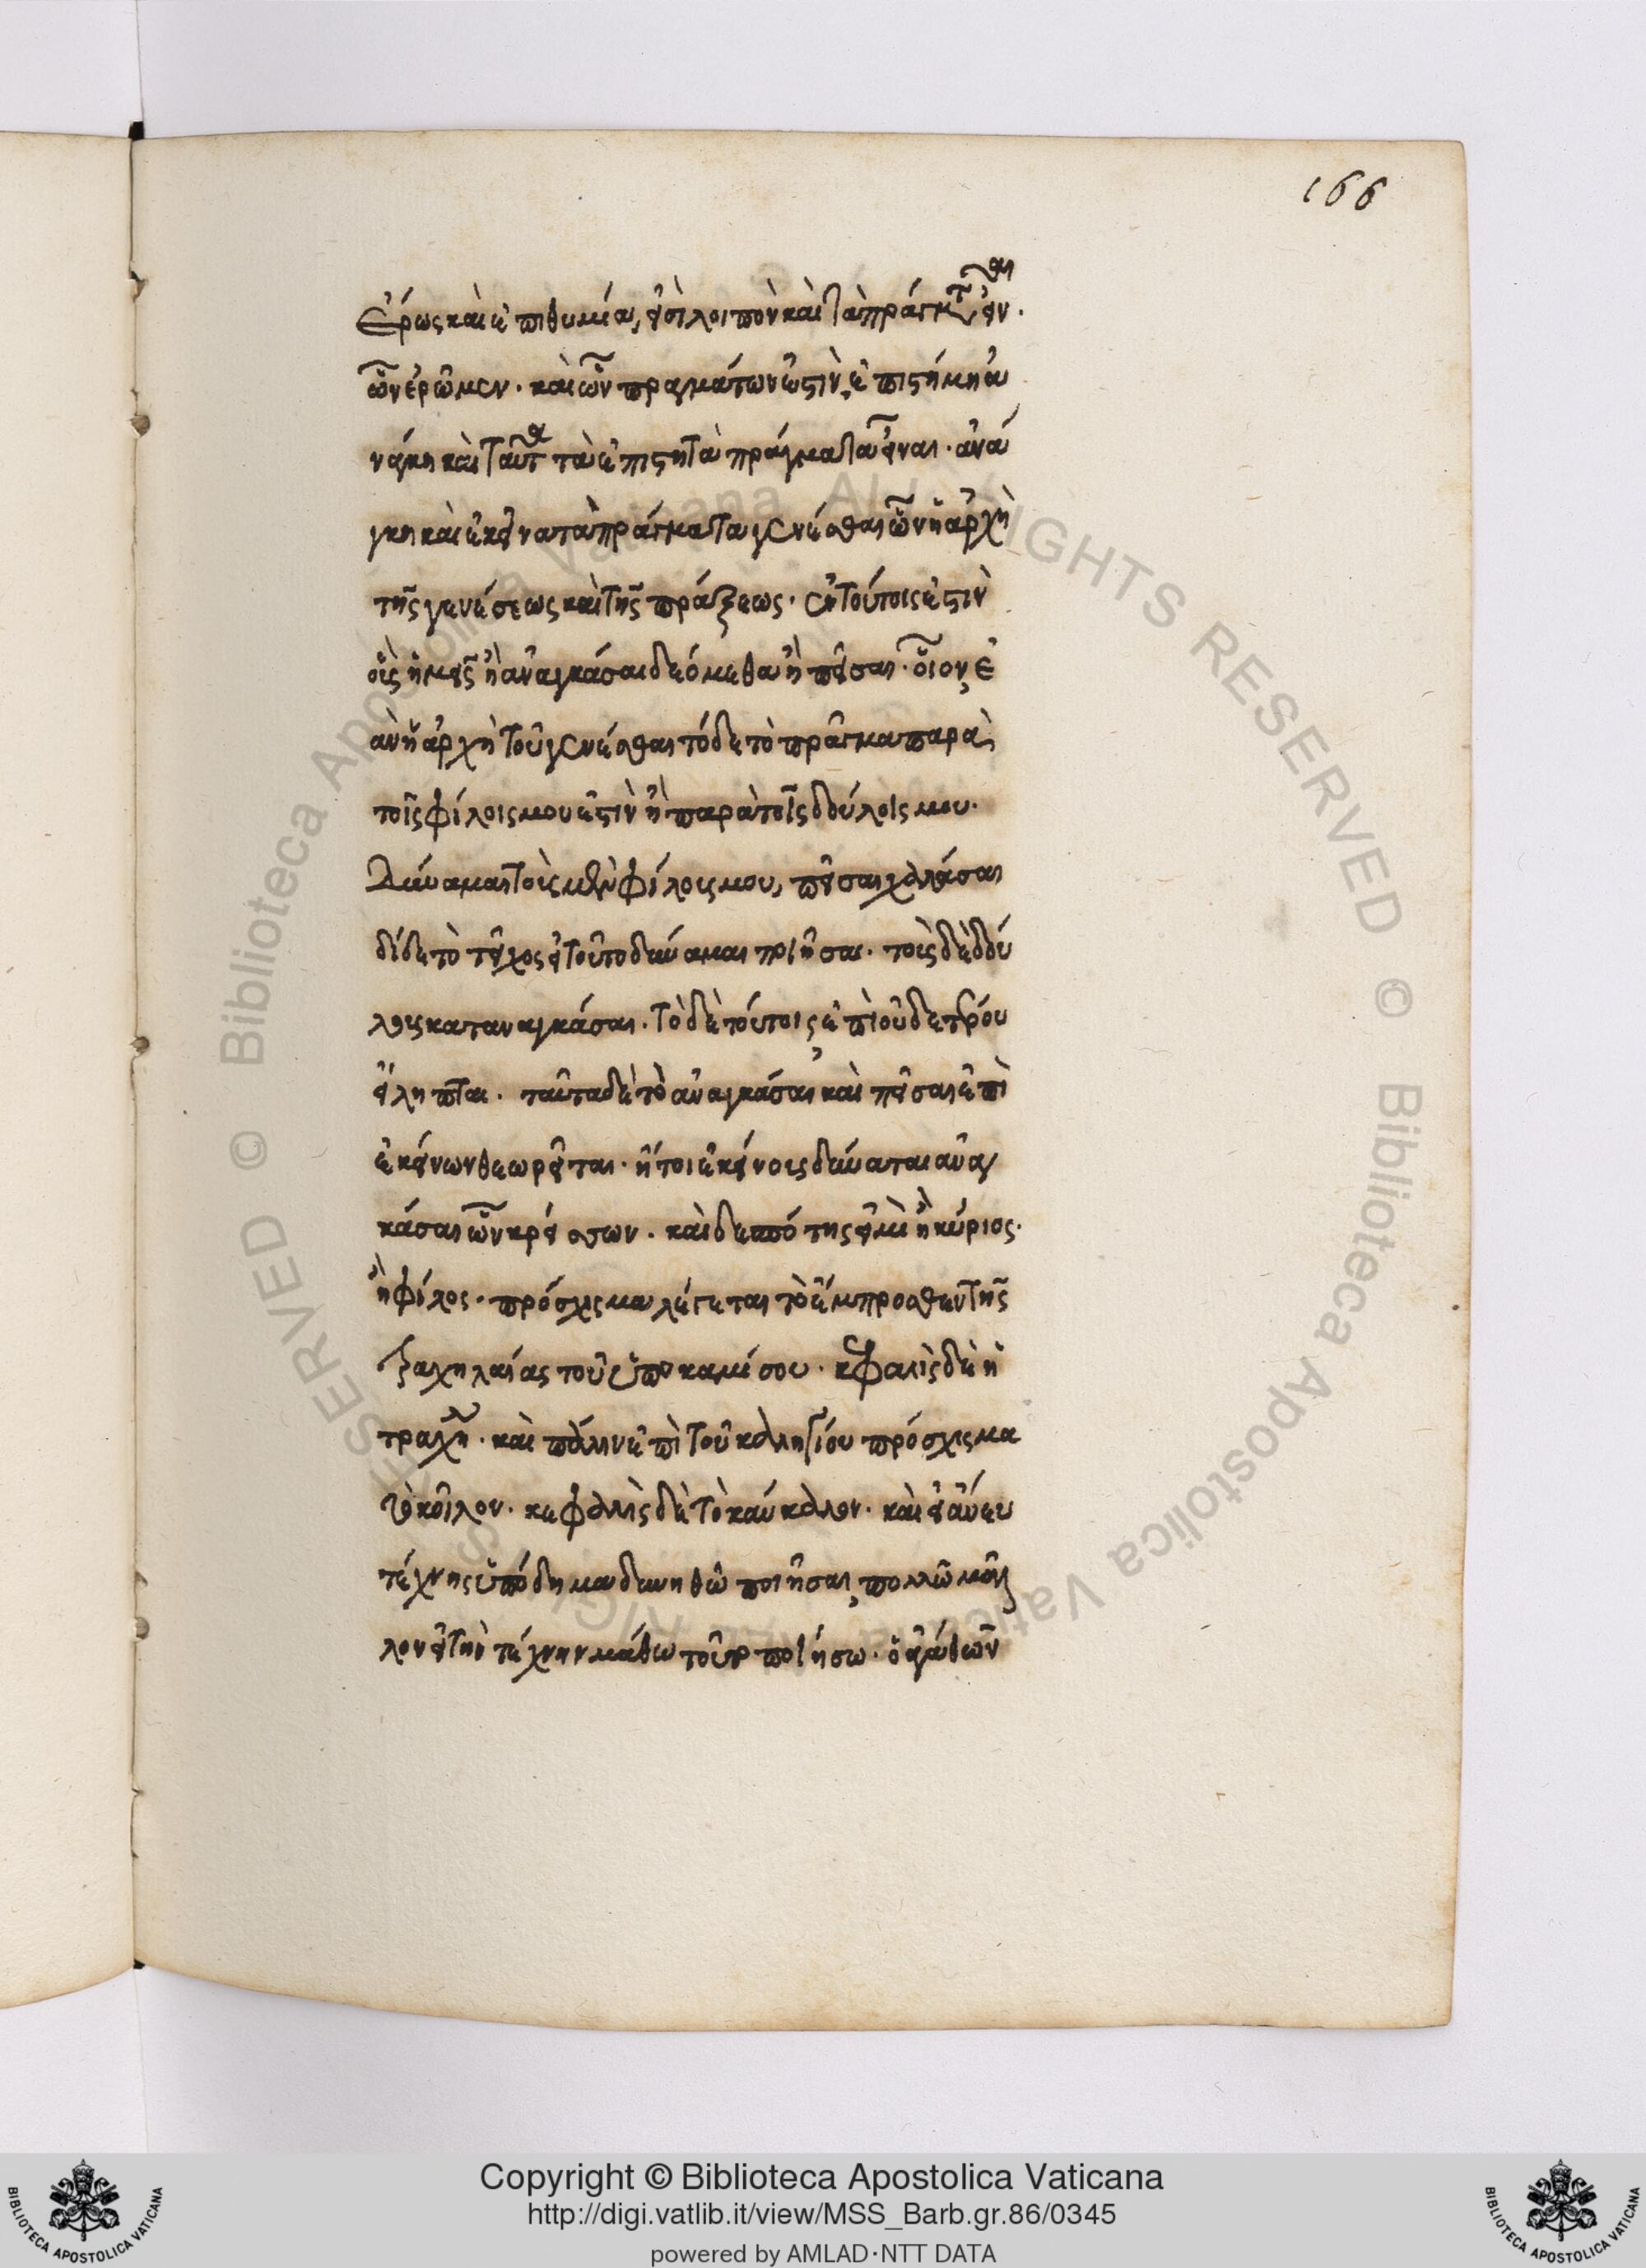 166
Ἔρως καὶ ἐπιθυμία, εἰσὶ λοιπὸν καὶ τὰ πράγματα εἶναι.
ὧν ἐρῶμεν. καὶ ὧν πραγμάτων ἐστὶν, ἐπιστήμη ἀ
νάγκη καὶ ταῦτα τὰ ἐπιστητὰ πράγματα εἶναι. ἀνά
γκη καὶ ἐκεῖνα τὰ πράγματα γενέσθαι ὧν ἡ ἀρχὴ
τῆς γενέσεως καὶ τῆς πράξεως. ἐν τούτοις ἐστὶν
οἷς ἡμεῖς ἢ ἀναγκάσαι δεόμεθα ἢ πεῖσαι. οἷον, ἐ
ὰν ἡ ἀρχὴ τοῦ γενέσθαι τόδε τὸ πρᾶγμα παρὰ
τοῖς φίλοις μου ἐστὶν ἢ παρὰ τοῖς δούλοις μου.
Δύναμαι τοὺς μὲν φίλους μου, πεῖσαι χαλάσαι
δίδε τὸ τεῖχος εἰ τοῦτο δύναμαι ποιῆσαι. τοὺς δὲ δού
λους καταναγκάσαι. τὸ δὲ τούτοις, ἐπὶ οὐδετέρου
εἴληπται. ταῦτα δὲ τὸ ἀναγκάσαι καὶ πεῖσαι ἐπὶ
ἐκείνων θεωρεῖται. ἤτοι ἐκείνοις δύναται ἀναγ
κάσαι ὧν κρείσσων. καὶ δεσπότης εἰμὶ ἢ κύριος.
ἢ φίλος. πρόσχισμα λέγεται τὸ ἔμπροσθεν τῆς
τραχηλαίας τοῦ ὑποκαμίσου. κεφαλὶς δὲ ἡ
τραχηλ. καὶ πάλιν ἐπὶ τοῦ καλητίου πρόσχισμα
τὸ κοῖλον. κεφαλὶς δὲ τὸ καύκαλον. καὶ εἰ ἄνευ
τέχνης ὑπόδημα δυνηθῶ ποιῆσαι, πολλῷ μᾶλ
λον εἰ τὴν τέχνην μάθω τοῦτο ποιήσω. ὁ ἀγαθῶν
Copyright © Biblioteca Apostolica Vaticana
http://digi.vatlib.it/view/MSS_Barb.gr.86/0345
powered by AMLAD·NTT DATA